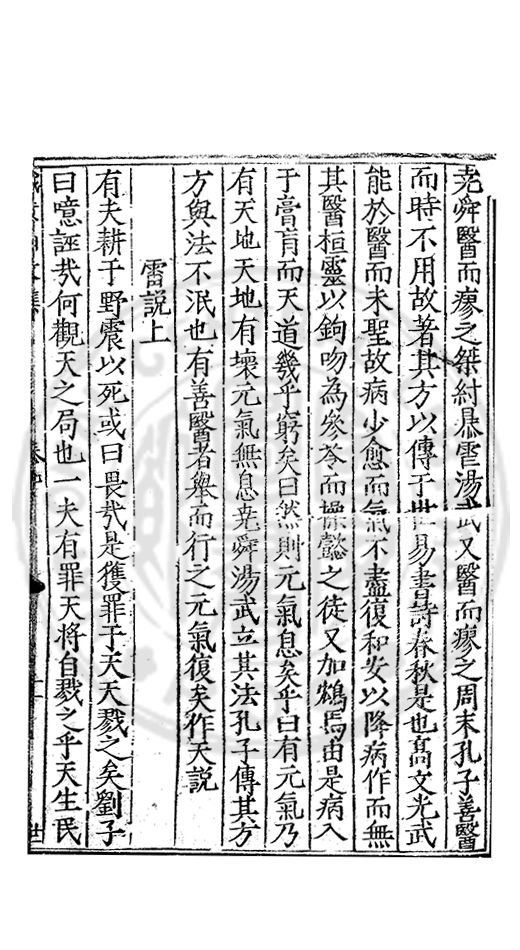 堯舜醫而瘳之桀紂暴虐湯武又醫而瘳之周末孔子善醫
而時不用故著其方以傳于世易書詩春秋是也髙文光武
能於醫而未聖故病少愈而氣不盡復和安以降病作而無
其醫桓靈以鉤吻為參苓而操懿之徒又加鴆焉由是病入
于膏肓而天道幾乎窮矣曰然則元氣息矣乎曰有元氣乃
有天地天地有壞元氣無息堯舜湯武立其法孔子傳其方
方與法不泯也有善醫者舉而行之元氣復矣作天説
雷説上
有夫耕于野震以死或曰畏㢤是獲罪于天天戮之矣劉子
曰噫誣㢤何觀天之局也一夫有罪天将自戮之乎天生民